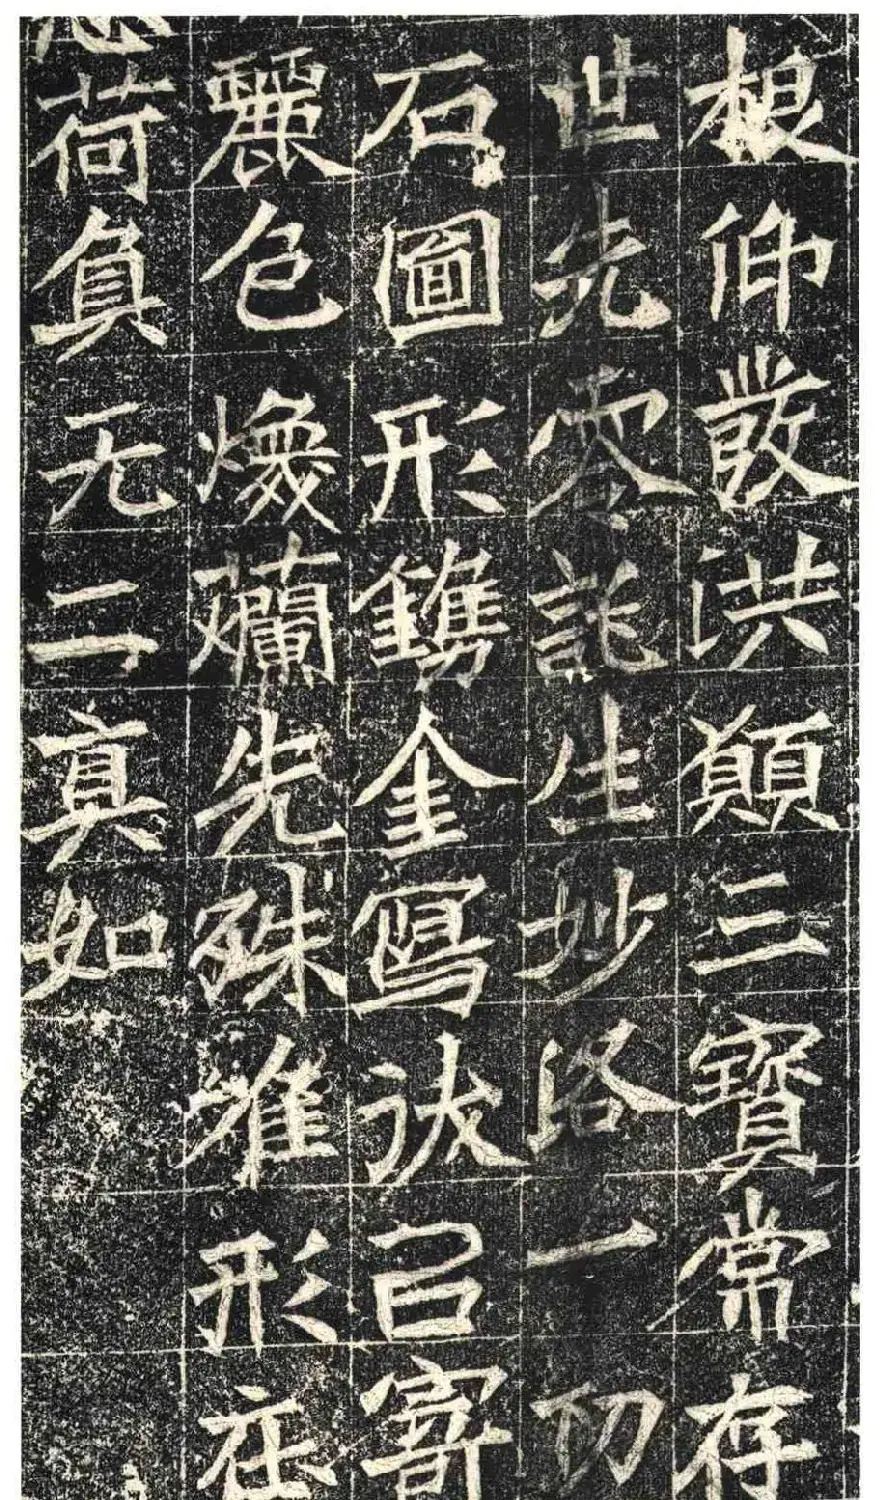 根仰發洪願三寶常存
世先託生妙路一切
石圖形鐫金寫寄
麗色煥爛先殊形在
荷負无二真如